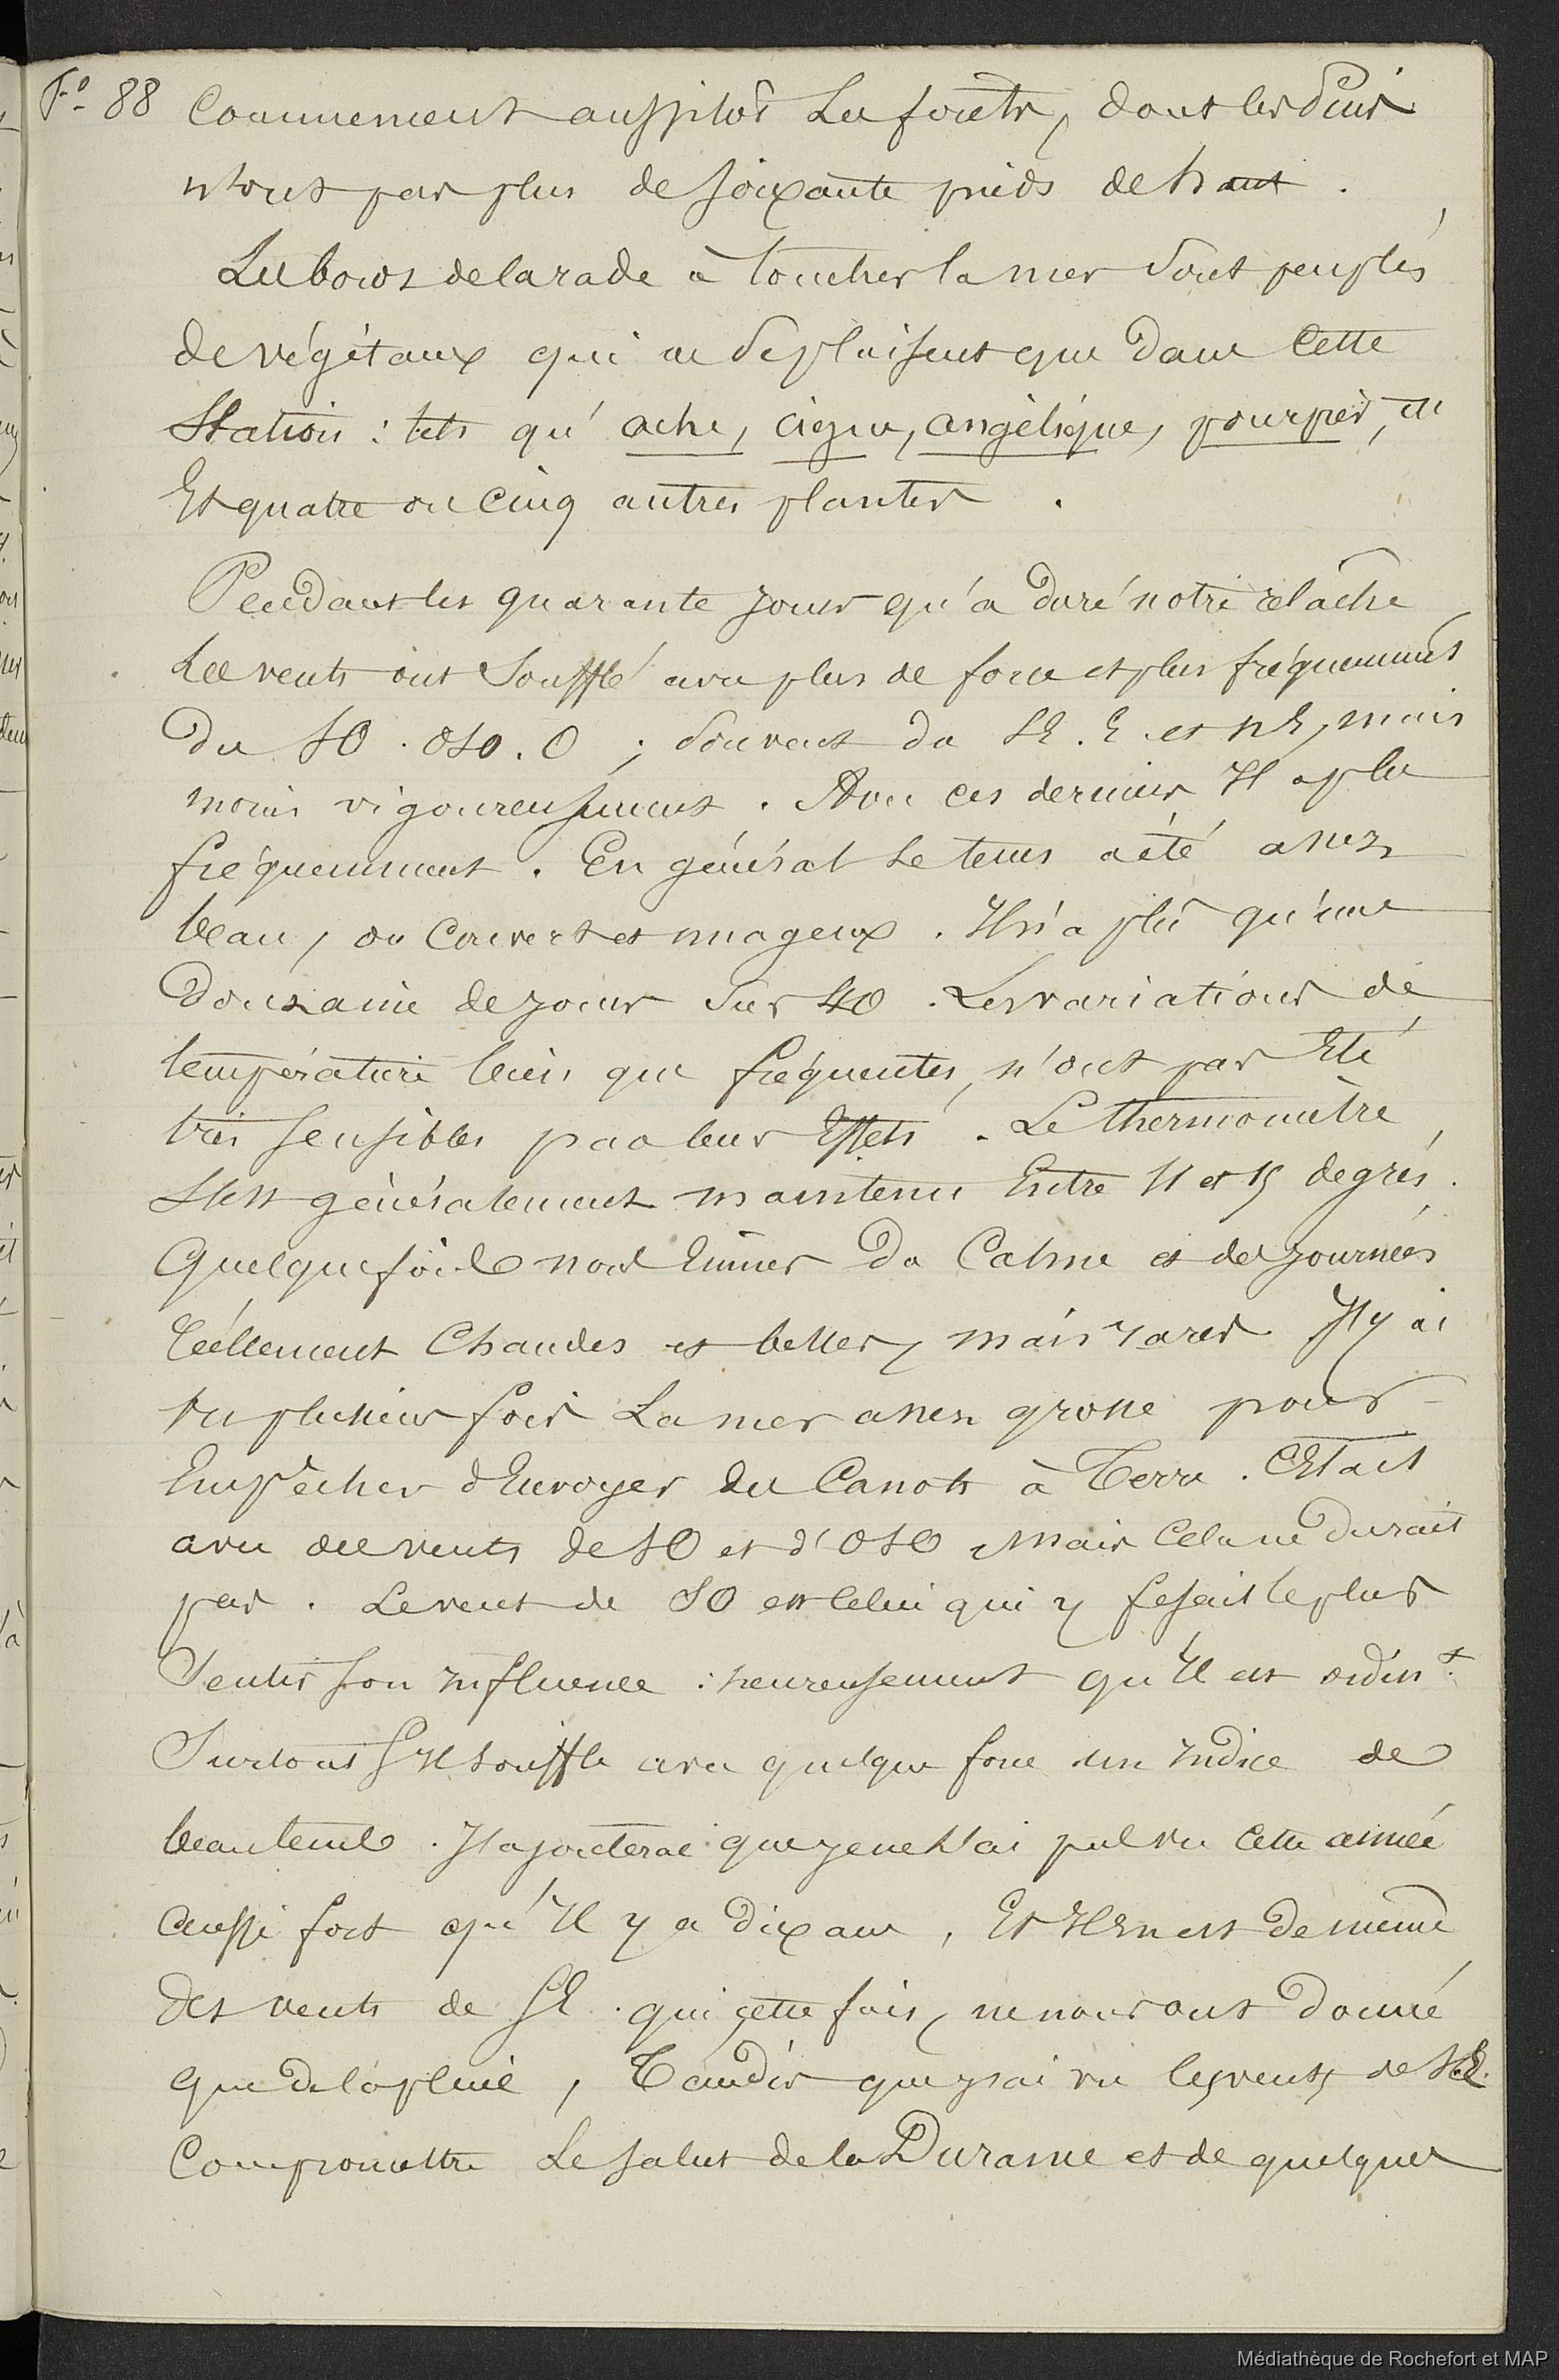 F.º 88 Commencent aussitôt Les forêts, dont les Pins
n'ont pas plus de soixante pieds de haut.
Les bords de la rade à toucher la mer sont peuplés
de végétaux qui ne se plaisent que dans Cette
Station : tels qu' ache, cigue, angélique, pourpier,
Et quatre ou Cinq autres plantes.
Pendant les quarante jours qu'a duré notre relâche
Les vents ont soufflé avec plus de force et plus fréquemment
Du SO. OSO. O ; Souvent du SE. E et NE, mais
moins vigoureusement. Avec ces derniers Il a plu
fréquemment. En général Le tems a été assez
beau, ou Couvert et nuageux. Il n'a plû qu'une
Douzaine de jours sur 40. Les variations de
température bien que fréquentes, n'ont pas Eté
très sensibles par leurs Effets. Le thermomètre
S'est généralement maintenu Entre 11 et 15 degrés.
Quelquefois nous Eumes Du Calme et des journées
réellement Chaudes et belles, mais rares. J'y ai
vu plusieurs fois La mer assez grosse pour
Empêcher d'Envoyer des Canots à Terre. C'Etait
avec des vents de SO et d'OSO Mais Cela ne Durait
pas. Le vent de SO est Celui qui y fesait le plus
Sentir son Influence : heureusement qu'Il est ordin.t
Surtout s'Il souffle avec quelque force un Indice de
beau tems. J'ajouterai que je ne l'ai pas vu Cette année
Aussi fort qu'Il y a Dix ans, Et Il En est De même
Des vents de SE. qui cette fois, ne nous ont Donné
que De la pluie, Tandis que j'ai vu les vents de SE.
Compromettre Le salut de la Durance et de quelques
Médiathèque de Rochefort et MAP